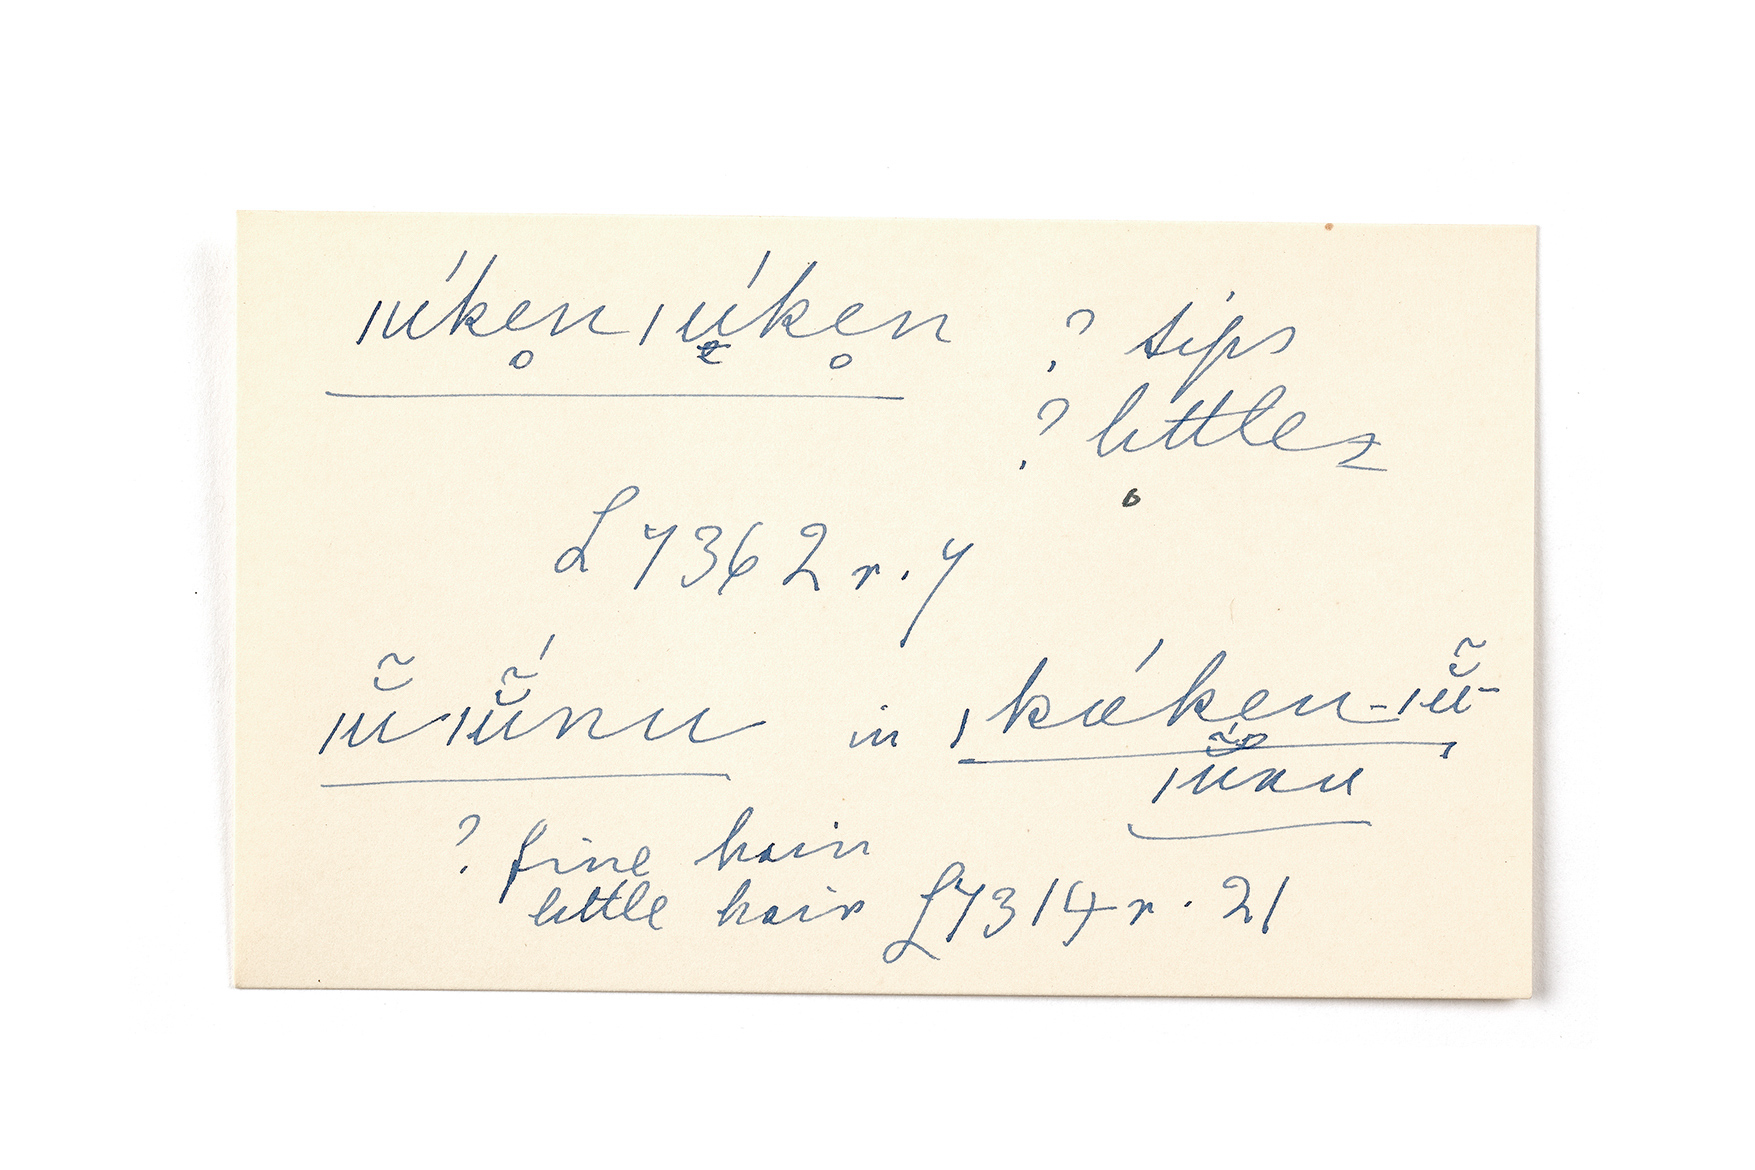 ǀúken̥ ǀúken̥ ? sips
? littles
L 7362 r. 7
ǀŭ̃ ǀŭ̃́nu in ǀkúken-ǀŭ̃-
ǀŭ̃́nu
? fine hair
little hair L 7314 r. 21